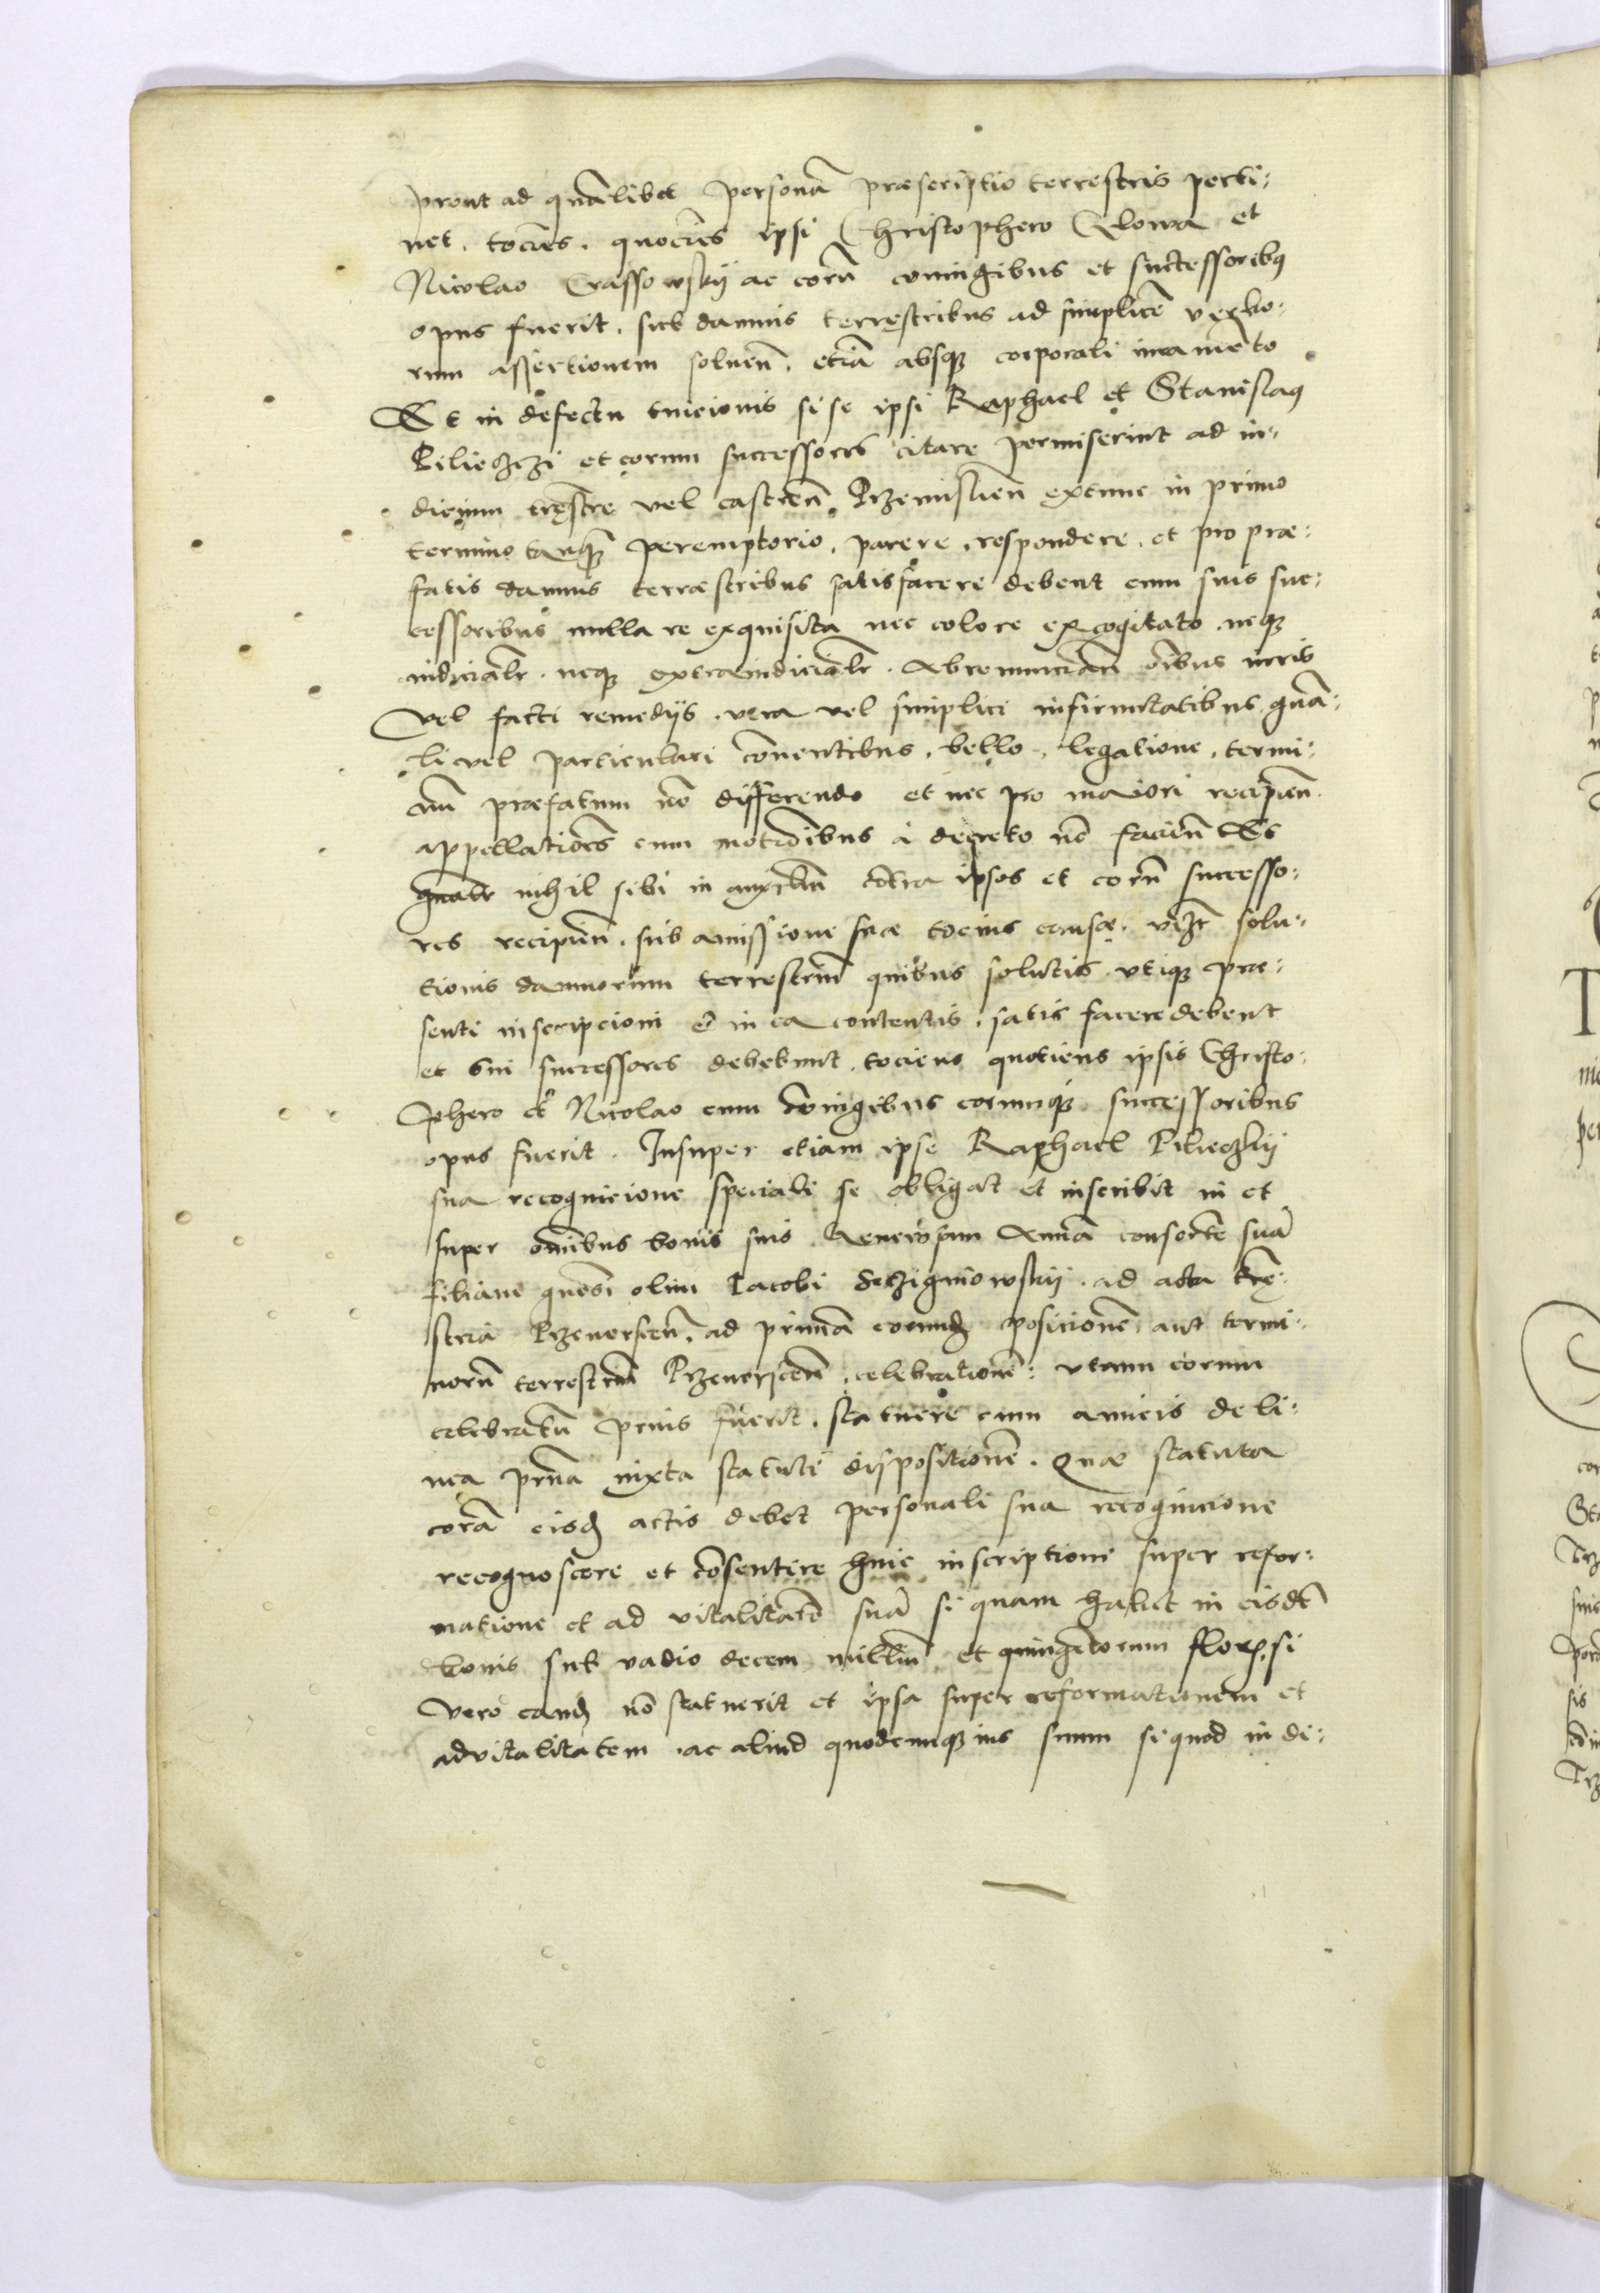 prout ad quālibet personā præscriptio terrestris perti:
net. tocies. quocies ipsi Christophero Glowa et
Nicolao Crassowskij ac eorū coniugibus et successoribus
opus fuerit. sub damnis terręstribus ad simplicē verbo:
rum assertionem soluen̄. etiā absq̨ corporali iuramēto
Et in defectu euicionis si se ipsi Raphael et Stanislaus
Pilieczczi et eorum successores citare permiserint ad iu:
dicium tręstre vel castren̄ Przemislien̄ extunc in primo
termino tanq̨ peremptorio. parere. respondere. et pro præ:
fatis damnis terræstribus satisfacere debent cum suis suc:
cessoribus nulla re exquisita nec colore excogitato. neq̨
iudicialr̄. neq̨ extraiudicialr̄. Abrenuncian̄ oībus iuris
vel facti remedijs. vera vel simplici infirmitatibus gnā:
li vel particulari cōuentibus. bello. legatione. termi:
nū præfatum nō differendo et nec pro maiori recipien̄.
appellatiōes cum motiōibus à decreto nō facien̄ Et
gnālr̄ nihil sibi in auxiliū cōtra ipsos et eorū successo:
res recipien̄. sub amissione suæ tocius causæ. vizt solu:
tionis damnorum terrestriū quibus solutis vtiq̨ præ:
senti inscripcioni et in ea contentis. satis facere debent
et sui successores debebunt. tociens quotiens ipsis Christo:
phero et Nicolao cum cōiugibus eorumq̨ successoribus
opus fuerit. Insuper etiam ipse Raphael Pilieczkij
sua recognicione speciali se obligat et inscribit in et
super oīnibus bonis suis Generosam Annā consortē suā
filiam gnēsi olim Iacobi Seczigniowskij. ad acta tręs:
stria Przeuorscen̄. ad primā eorundz̄ posicionē aut termi:
norū terrestriū Przeuorscen̄. celebrationē: vtrum eorum
celebratū prius fuerit. statuere cum amicis de li:
nea pr̄na iuxta statuti dispositionē. Quæ statuta
corā eisdz̄ actis debet personali sua recognicione
recognoscere et cōsentire huic inscriptioni super refor:
matione et ad vitalitatē suā si quam habet in eisdē
bonis sub vadio decem milliū et quingētorum flor. si
vero eandz̄ nō statuerit et ipsa super reformationem et
advitalitatem. ac aliud quodcunq̨ ius suum si quod in di: